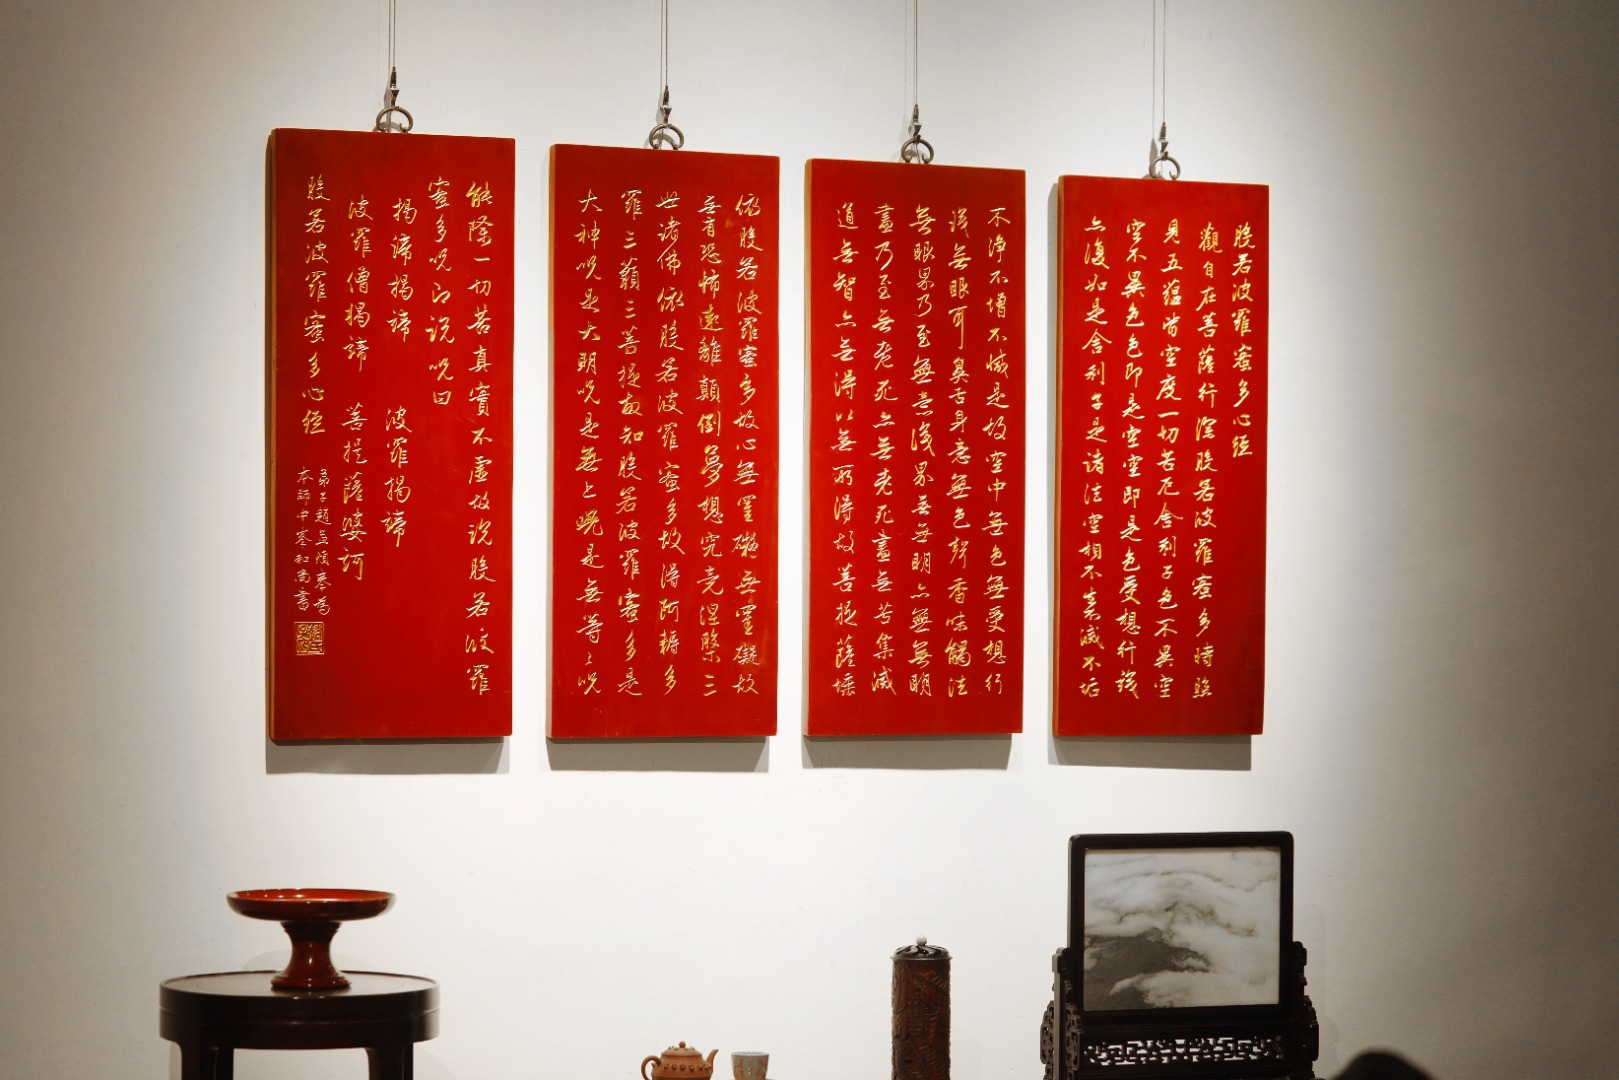 般若波羅蜜多心經
觀自在菩薩行深般若波羅蜜多時照
見五蘊皆空度一切苦厄舍利子色不異空
空不異色色即是空空即是色受想行識
亦復如是舍利子是諸法空相不生不滅不垢
不淨不增不減是故空中無色無受想行
識無眼耳鼻舌身意無色聲香味觸法
無眼界乃至無意識界無無明亦無無明
盡乃至無老死亦無老死盡無苦集滅
道無智亦無得以無所得故菩提薩埵
依般若波羅蜜多故心無罣礙無罣礙故
無有恐怖遠離顛倒夢想究竟涅槃三
世諸佛依般若波羅蜜多故得阿耨多
羅三藐三菩提故知般若波羅蜜多是
大神咒是大明咒是無上咒是無等々咒
能除一切苦真實不虛故說般若波羅
蜜多咒即說咒曰
揭諦揭諦 波羅揭諦
波羅僧揭諦 菩提薩婆訶
般若波羅蜜多心經
弟子趙孟頫奉為
本師中峯和尚書